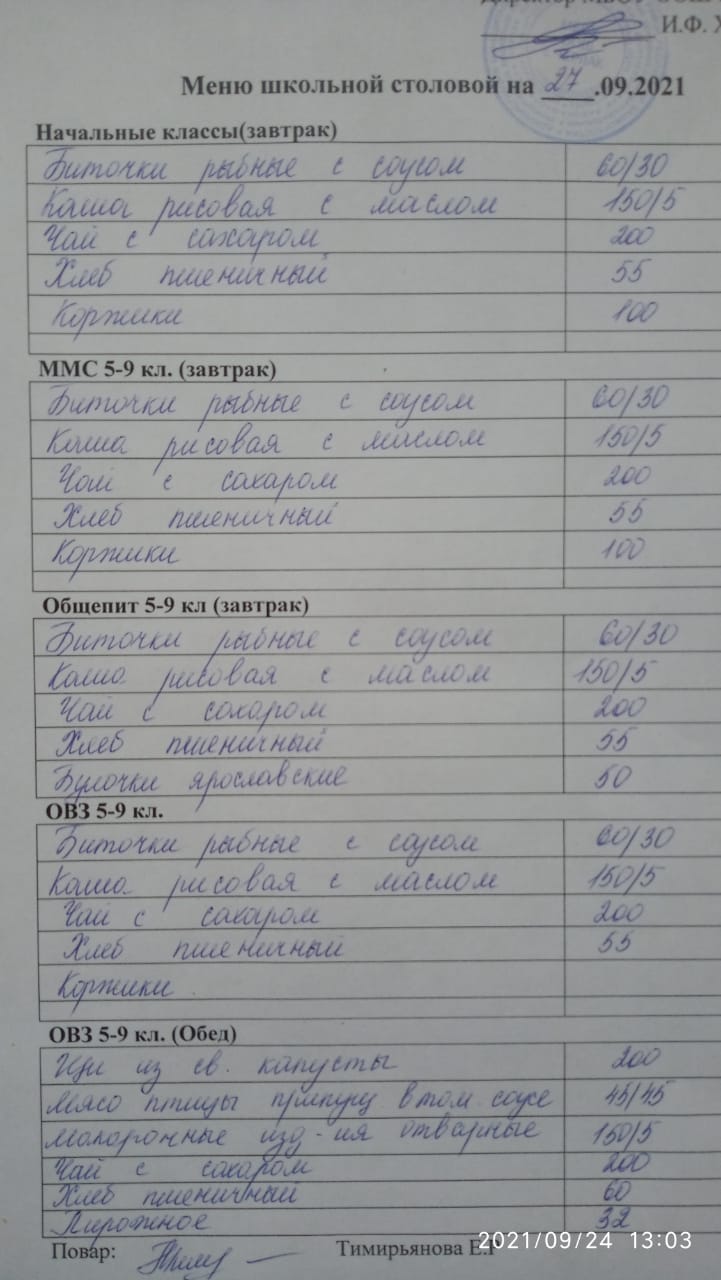 Директор МБОУ
И.Ф. Х
Меню школьной столовой на 27.09.2021
Начальные классы(завтрак)
Биточки рыбные с соусом 60/30
Каша рисовая с маслом 150/5
Чай с сахаром 200
Хлеб пшеничный 55
Коржики 100
ММС 5-9 кл. (завтрак)
Биточки рыбные с соусом 60/30
Каша рисовая с маслом 150/5
Чай с сахаром 200
Хлеб пшеничный 55
Коржики 100
Общепит 5-9 кл (завтрак)
Биточки рыбные с соусом 60/30
Каша рисовая с маслом 150/5
Чай с сахаром 200
Хлеб пшеничный 55
Булочки ярославские 50
ОВЗ 5-9 кл.
Биточки рыбные с соусом 60/30
Каша рисовая с маслом 150/5
Чай с сахаром 200
Хлеб пшеничный 55
Коржики
ОВЗ 5-9 кл. (Обед)
Щи из св. капусты 200
Мясо птицы припущ в том. соусе 45/45
Макаронные изд-ия отварные 150/5
Чай с сахаром 200
Хлеб пшеничный 60
Пирожное 32
Повар: Тимирьянова Е.Г
2021/09/24 13:03